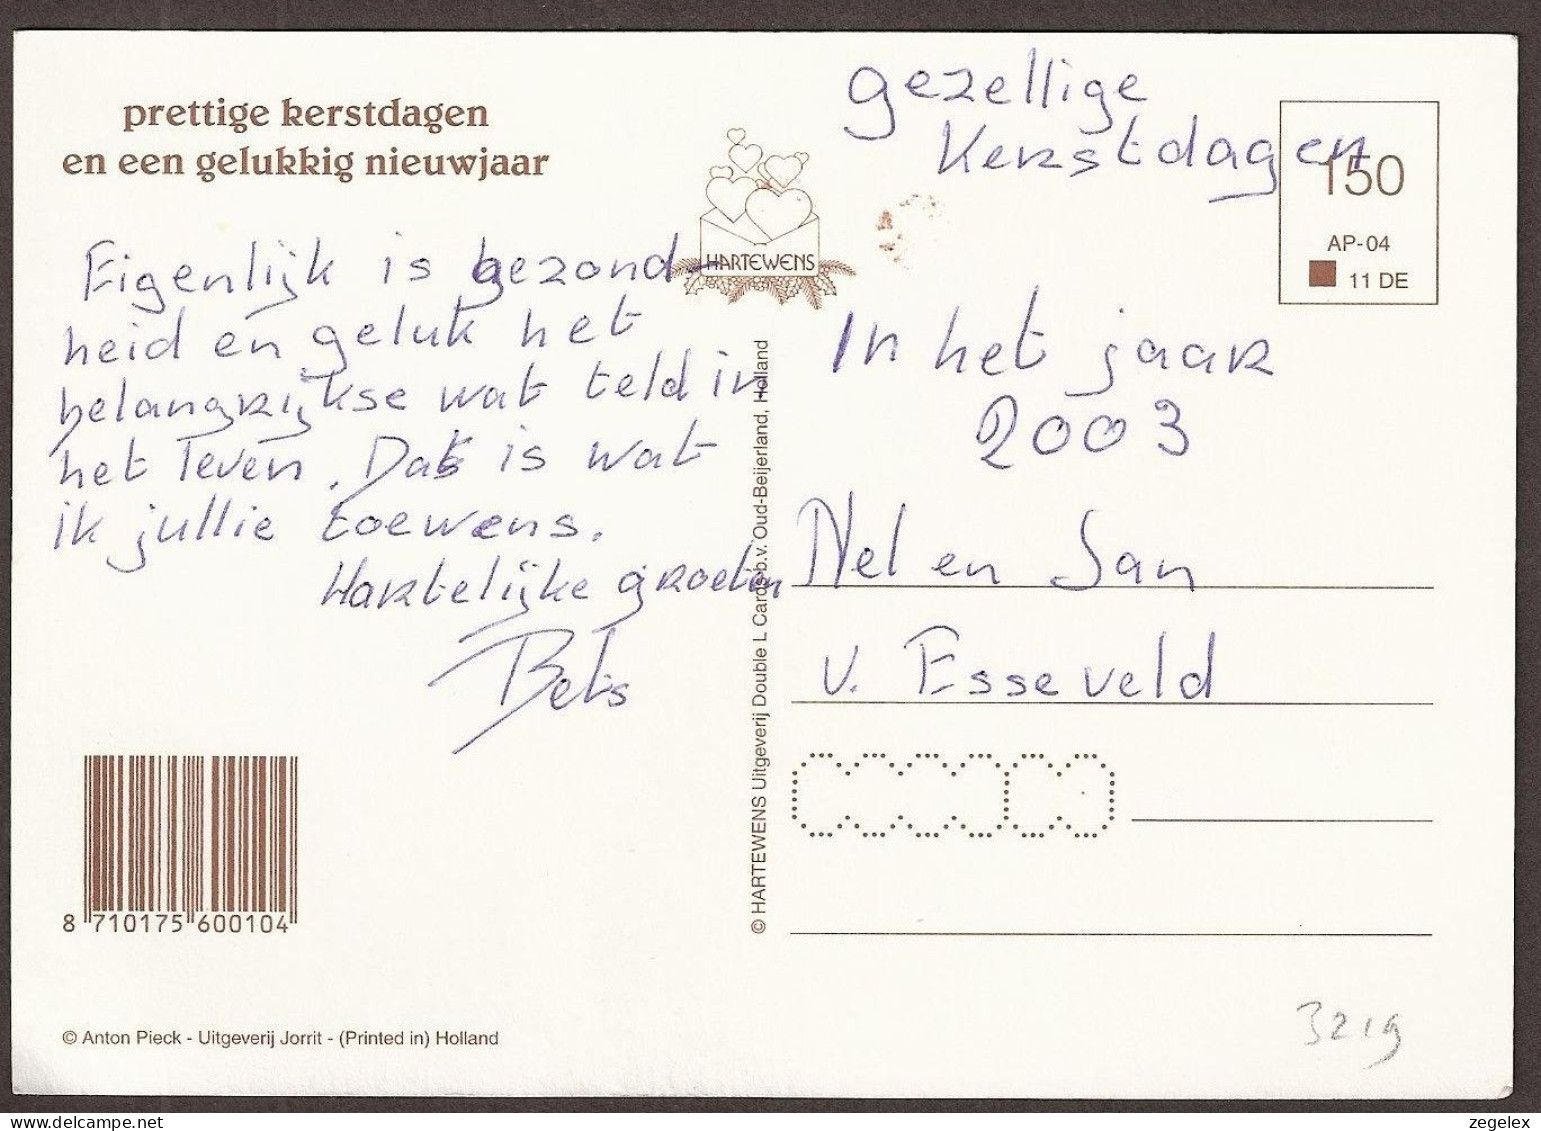 prettige kerstdagen
en een gelukkig nieuwjaar
Eigenlijk is gezond-
heid en geluk het
belangrijkse wat teld in
het leven. Dat is wat
ik jullie toewens.
Hartelijke groeten
Bets
8 710175 600104
© Anton Pieck - Uitgeverij Jorrit - (Printed in) Holland
HARTEWENS
© HARTEWENS Uitgeverij Double L Cards b.v. Oud-Beijerland, Holland
gezellige
Kerstdagen
150
AP-04
11 DE
In het jaar
2003
Nel en Jan
v. Esseveld
3219
zegelex